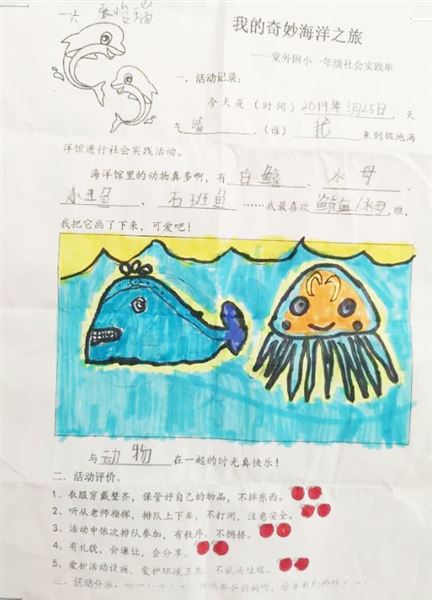 一六
我的奇妙海洋之旅
——棠外附小一年级社会实践单
一、活动记录:
今天是(时间)2019年3月25日,天
气晴,(谁)我来到极地海
洋馆进行社会实践活动。
海洋馆里的动物真多啊,有白鲸、水母、
小丑鱼、石斑鱼……我最喜欢鲸鱼/水母,
我把它画了下来,可爱吧!
与动物在一起的时光真快乐!
二、活动评价。
1、衣服穿戴整齐,保管好自己的物品,不掉东西。
2、听从老师指挥,排队上下车,不打闹,注意安全。
3、活动中依次排队参加,有秩序,不拥挤。
4、有礼貌,会谦让,会分享。
5、爱护活动设施,爱护环境卫生,不乱丢垃圾。
三、活动分享。